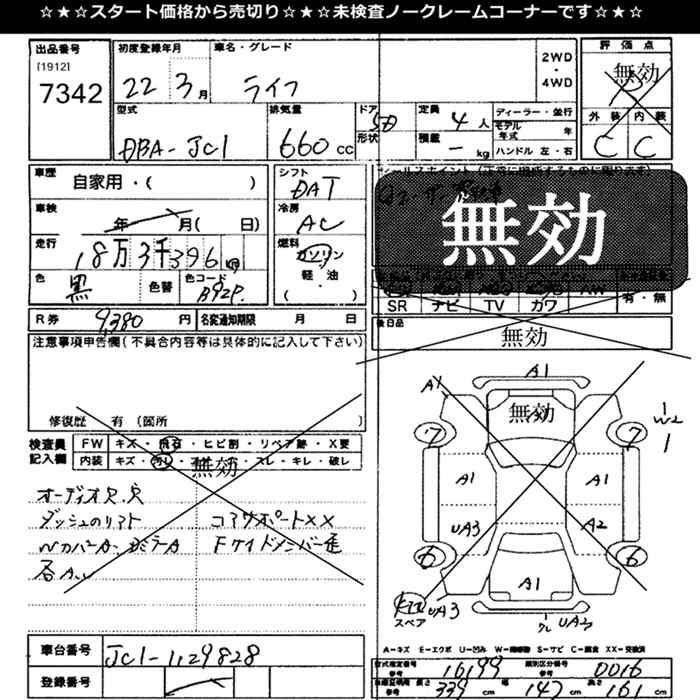 ☆★☆★スタート価格から売切り☆★☆★未検査ノークレームコーナーです☆★☆
出品番号 初度登録年月 車名・グレード 2WD・4WD 評価点
[1912]
7342 22 3月 ライフ 無効
型式 排気量 ドア形状 定員 4人 ディーラー・並行 外装 内装
DBA-JC1 660cc 5D 積載 -kg モデル年式 年 C C
ハンドル 左・右
車歴 自家用・( ) シフト
DAT
車検 年 月( 日) 冷房 AC
無効
走行 18万3千396 燃料 ガソリン 軽・油 ( )
色 黒 色替 色コード B92P
SR ナビ TV カワ 有・無
R券 9,380円 名変通知期限 月 日 後日品
無効
注意事項申告欄(不具合内容等は具体的に記入して下さい)
修復歴 有 (箇所 )
検査員記入欄 FW キズ・飛石・ヒビ割・リペア跡・X要
内装 キズ・汚レ・ スレ・キレ・破レ
無効
ダッシュのリフト コアサポートXX
A1
A1
無効
7 7
W2
1
A1 A1
UA3 A2
6 6
A1
スペア UA3 UA3
A-キズ E-エクボ U-凹み W-補修跡 S-サビ C-腐食 XX-交換済
車台番号 JC1-1129828
登録番号
型式指定番号 参考 16199 類別区分番号 参考 0016
長さ 339cm 幅 147cm 高さ 161cm